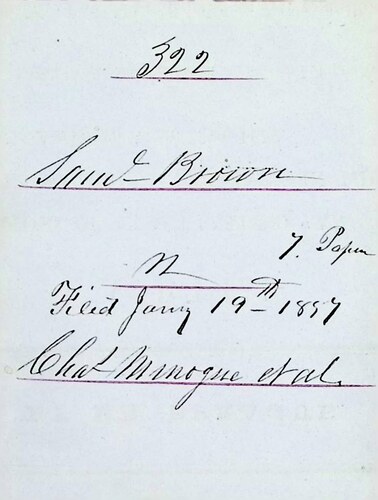 322
Saml Brown
7. Papers
vs
Filed Jany 19th 1857
Chas Minogue et al.